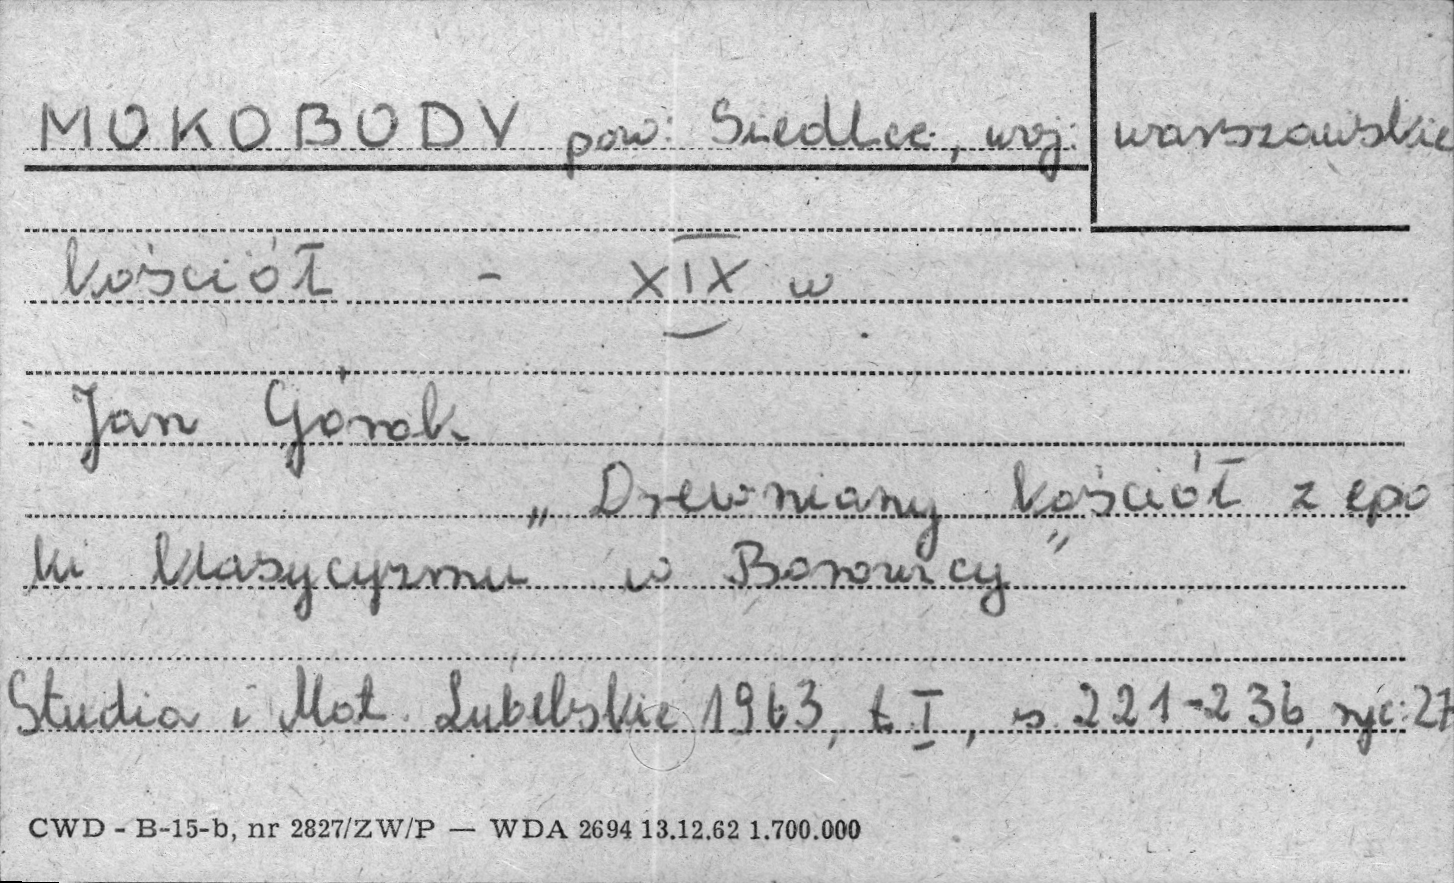 MOKOBODY pow. Siedlce, woj. warszawskie
kościół - XIX w
Jan Górak
„Drewniany kościół z epo
ki klasycyzmu w Borowicy"
Studia i Mat. Lubelskie 1963, t. I, s. 221-236, ryc. 27
CWD - B-15-b, nr 2827/ZW/P — WDA 2694 13.12.62 1.700.000